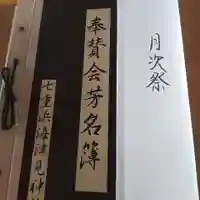 月次祭
奉賛会芳名簿
七重浜海津見神